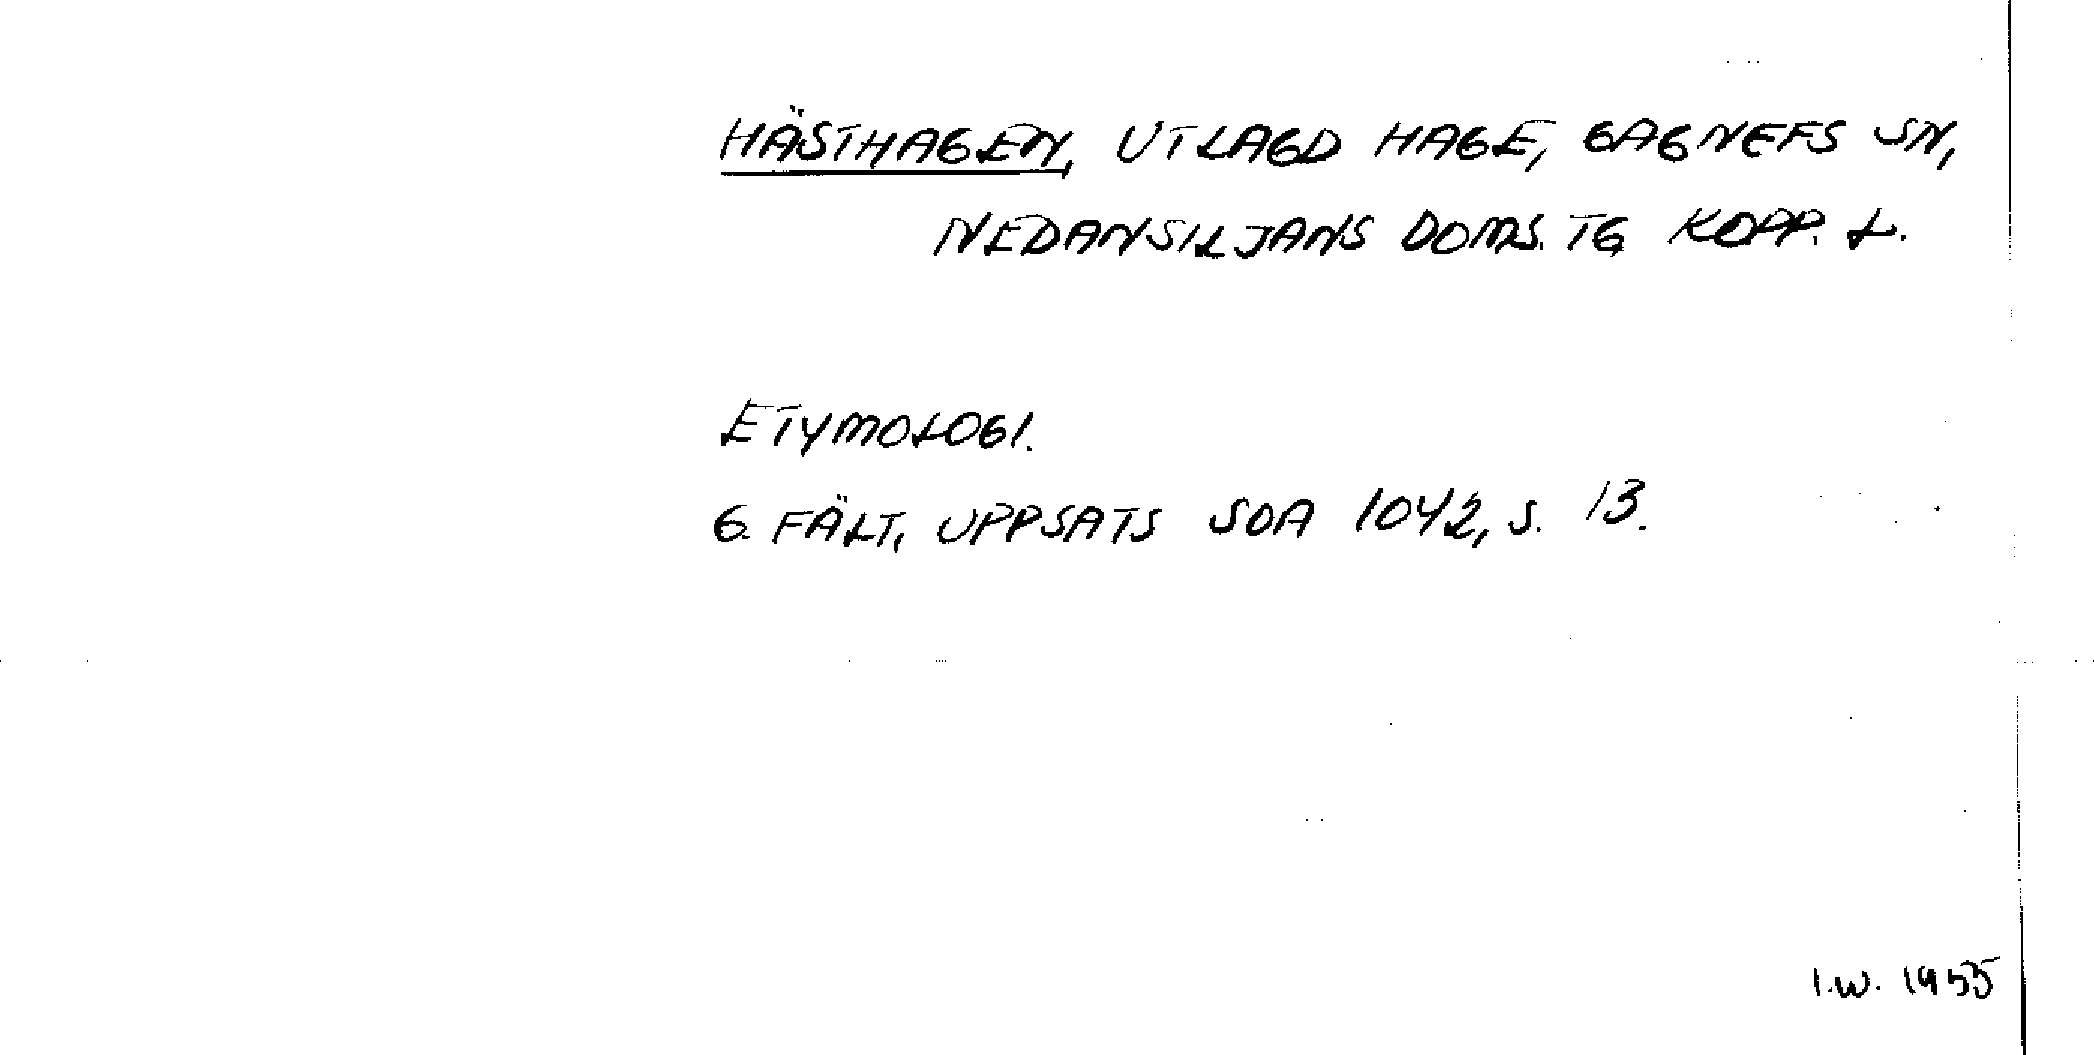 HÄSTHAGEN, UTLAGD HAGE, GAGNEFS SN,
NEDANSILJANS DOMS. TG KOPP. L.
ETYMOLOGI.
G. FÄLT, UPPSATS SOA 1042, S. 13.
I.W. 1955